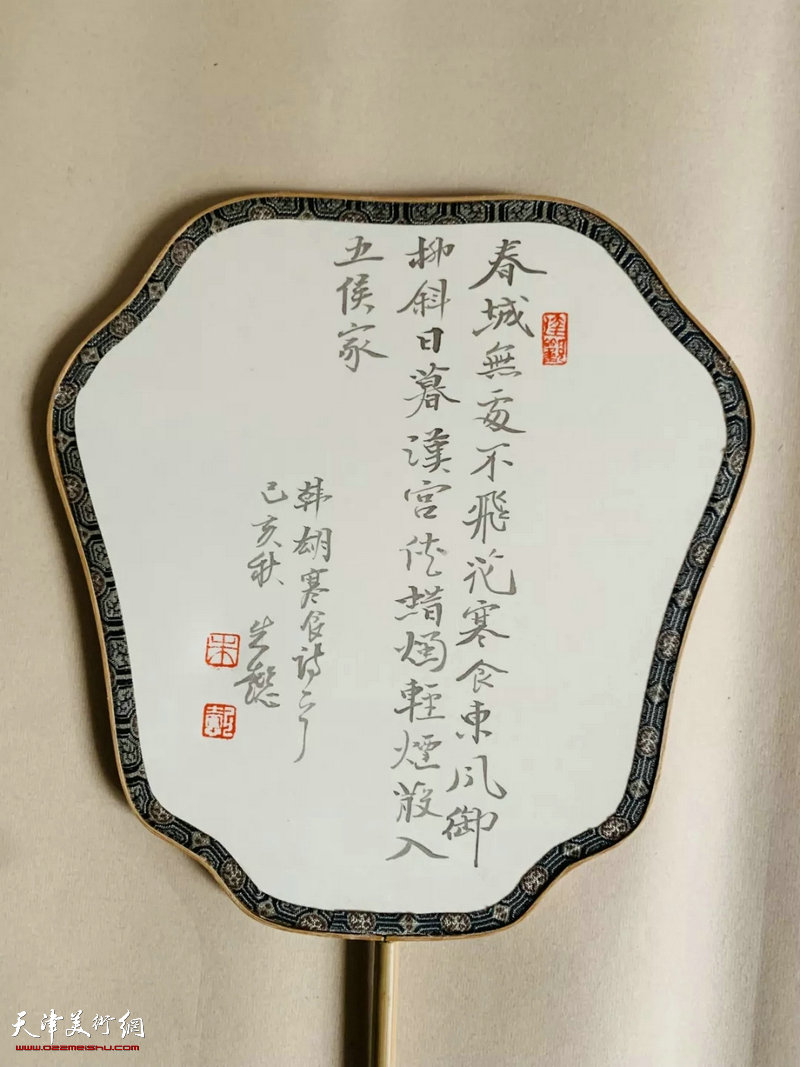 春城無處不飛花寒食東風御
柳斜日暮漢宮傳蜡燭輕煙散入
五侯家
韩翃寒食詩一首
己亥秋 朱懿
朱
懿
天津美術網
www.022meishu.com